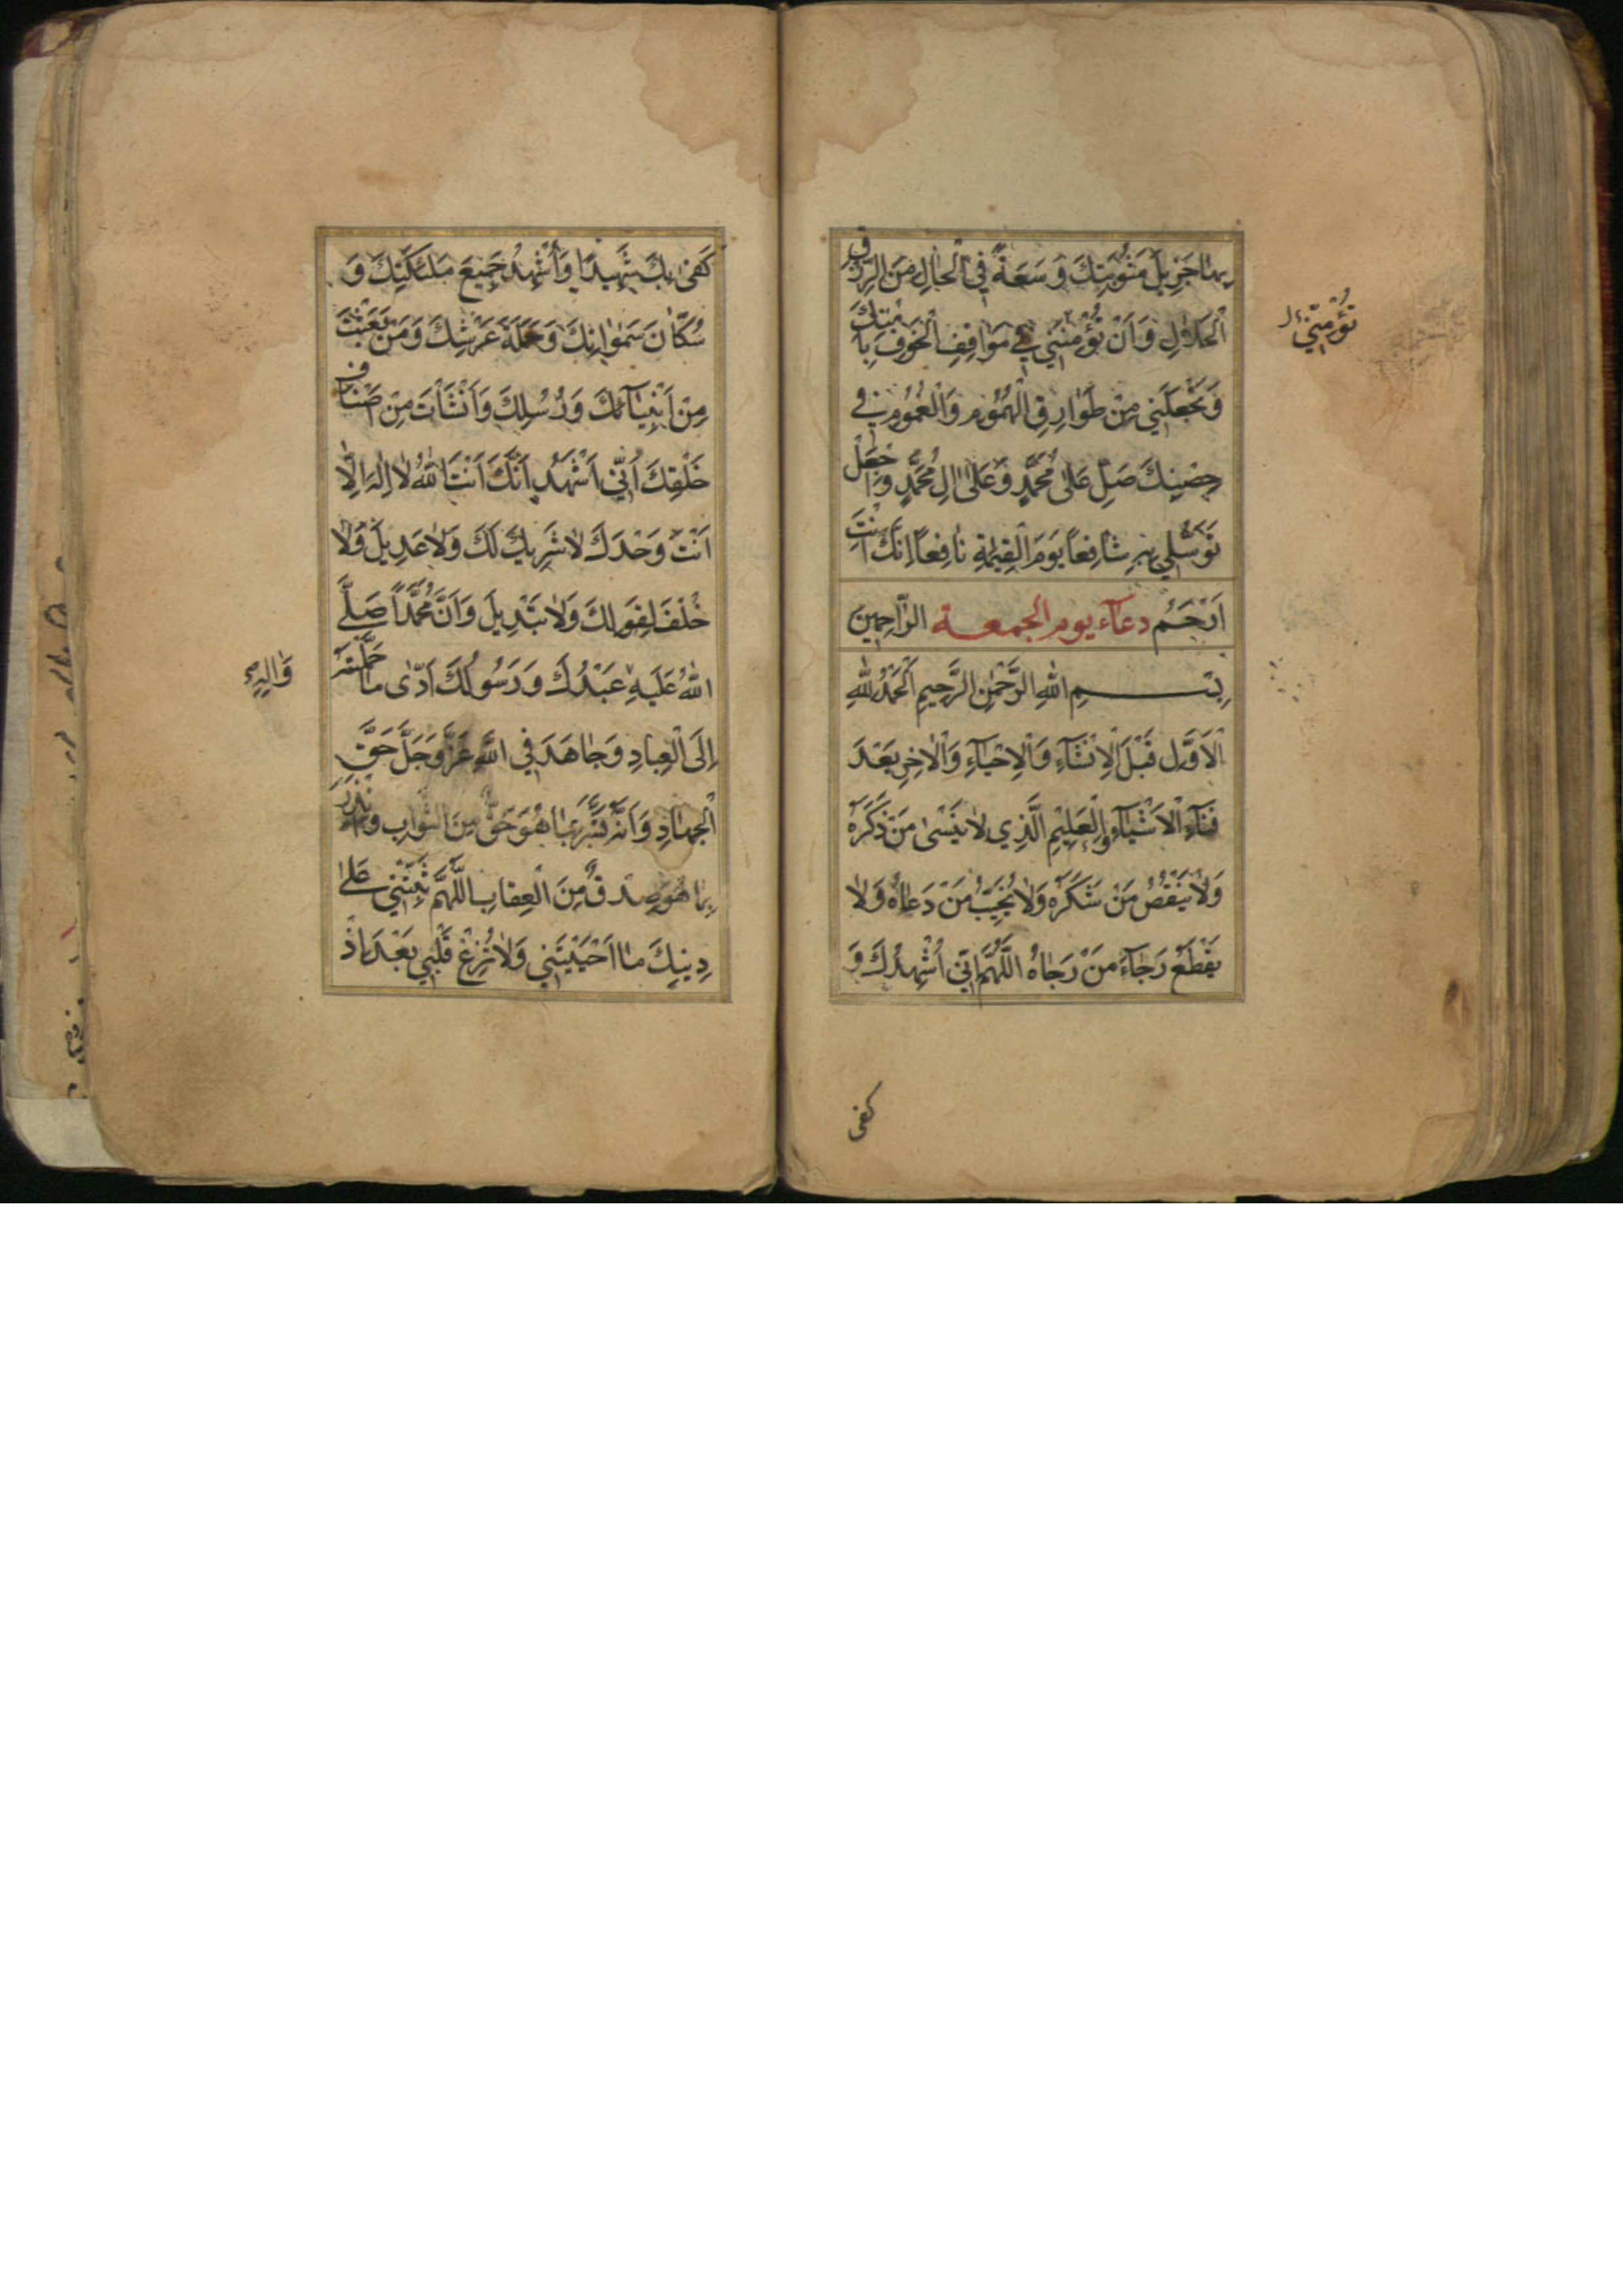 بِهٰا جَزِيلَ مَثُوبَتِكَ وَ سَعَةً فِي الْحٰالِ مِنَ الرِّزْقِ
الْحَلاٰلِ وَ اَنْ تُؤْمِنَنِي فِي مَوٰاقِفِ الْخَوْفِ بِاَمْنِكَ
تُؤْمِنَنِي
وَ تَجْعَلَنِي مِنْ طَوٰارِقِ الْهُمُومِ وَالْغُمُومِ فِي
حِصْنِكَ صَلِّ عَلىٰ مُحَمَّدٍ وَ عَلىٰ اٰلِ مُحَمَّدٍ وَ اجْعَلْ
تَوَسُّلِي بِهِ شٰافِعاً يَوْمَ الْقِيٰمَةِ نٰافِعاً اِنَّكَ اَنْتَ
اَرْحَمُ دعآء يوم الجمعة الرّٰاحِمِينَ
بِسْمِ اللهِ الرَّحْمٰنِ الرَّحِيمِ اَلْحَمْدُ لِلّٰهِ
الْاَوَّلِ قَبْلَ الْاِنْشٰآءِ وَ الْاِحْيٰآءِ وَالْاٰخِرِ بَعْدَ
فَنٰآءِ الْاَشْيٰآءِ وَ الْعَلِيمِ الَّذِي لاٰ يَنْسىٰ مَنْ ذَكَرَهُ
وَلاٰ يَنْقُصُ مَنْ شَكَرَهُ وَلاٰ يُخَيِّبُ مَنْ دَعٰاهُ وَلاٰ
يَقْطَعُ رَجٰآءَ مَنْ رَجٰاهُ اللّٰهُمَّ اِنِّي اُشْهِدُكَ وَ
كفى
كَفىٰ بِكَ شَهِيدًا وَ اُشْهِدُ جَمِيعَ مَلٰئِكَتِكَ وَ
سُكّٰانَ سَمٰوٰاتِكَ وَ حَمَلَةَ عَرْشِكَ وَ مَنْ بَعَثْتَ
مِنْ اَنْبِيٰآئِكَ وَ رُسُلِكَ وَ اَنْشَأْتَ مِنْ اَصْنٰافِ
خَلْقِكَ اَنِّي اَشْهَدُ اَنَّكَ اَنْتَ اللهُ لاٰ اِلٰهَ اِلّٰا
اَنْتَ وَحْدَكَ لاٰ شَرِيكَ لَكَ وَلاٰ عَدِيلَ وَلاٰ
خُلْفَ لِقَوْلِكَ وَلاٰ تَبْدِيلَ وَ اَنَّ مُحَمَّدًا صَلَّى
اللهُ عَلَيْهِ عَبْدُكَ وَ رَسُولُكَ اَدّٰى مٰا حَمَّلْتَهُ
وَاٰلِهِ
اِلَى الْعِبٰادِ وَ جٰاهَدَ فِي اللهِ عَزَّ وَ جَلَّ حَقَّ
الْجِهٰادِ وَ اَنَّهُ بَشَّرَ بِمٰا هُوَ حَقٌّ مِنَ الثَّوٰابِ وَ اَنْذَرَ
بِمٰا هُوَ صِدْقٌ مِنَ الْعِقٰابِ اللّٰهُمَّ ثَبِّتْنِي عَلىٰ
دِينِكَ مٰا اَحْيَيْتَنِي وَلاٰ تُزِغْ قَلْبِي بَعْدَ اِذْ